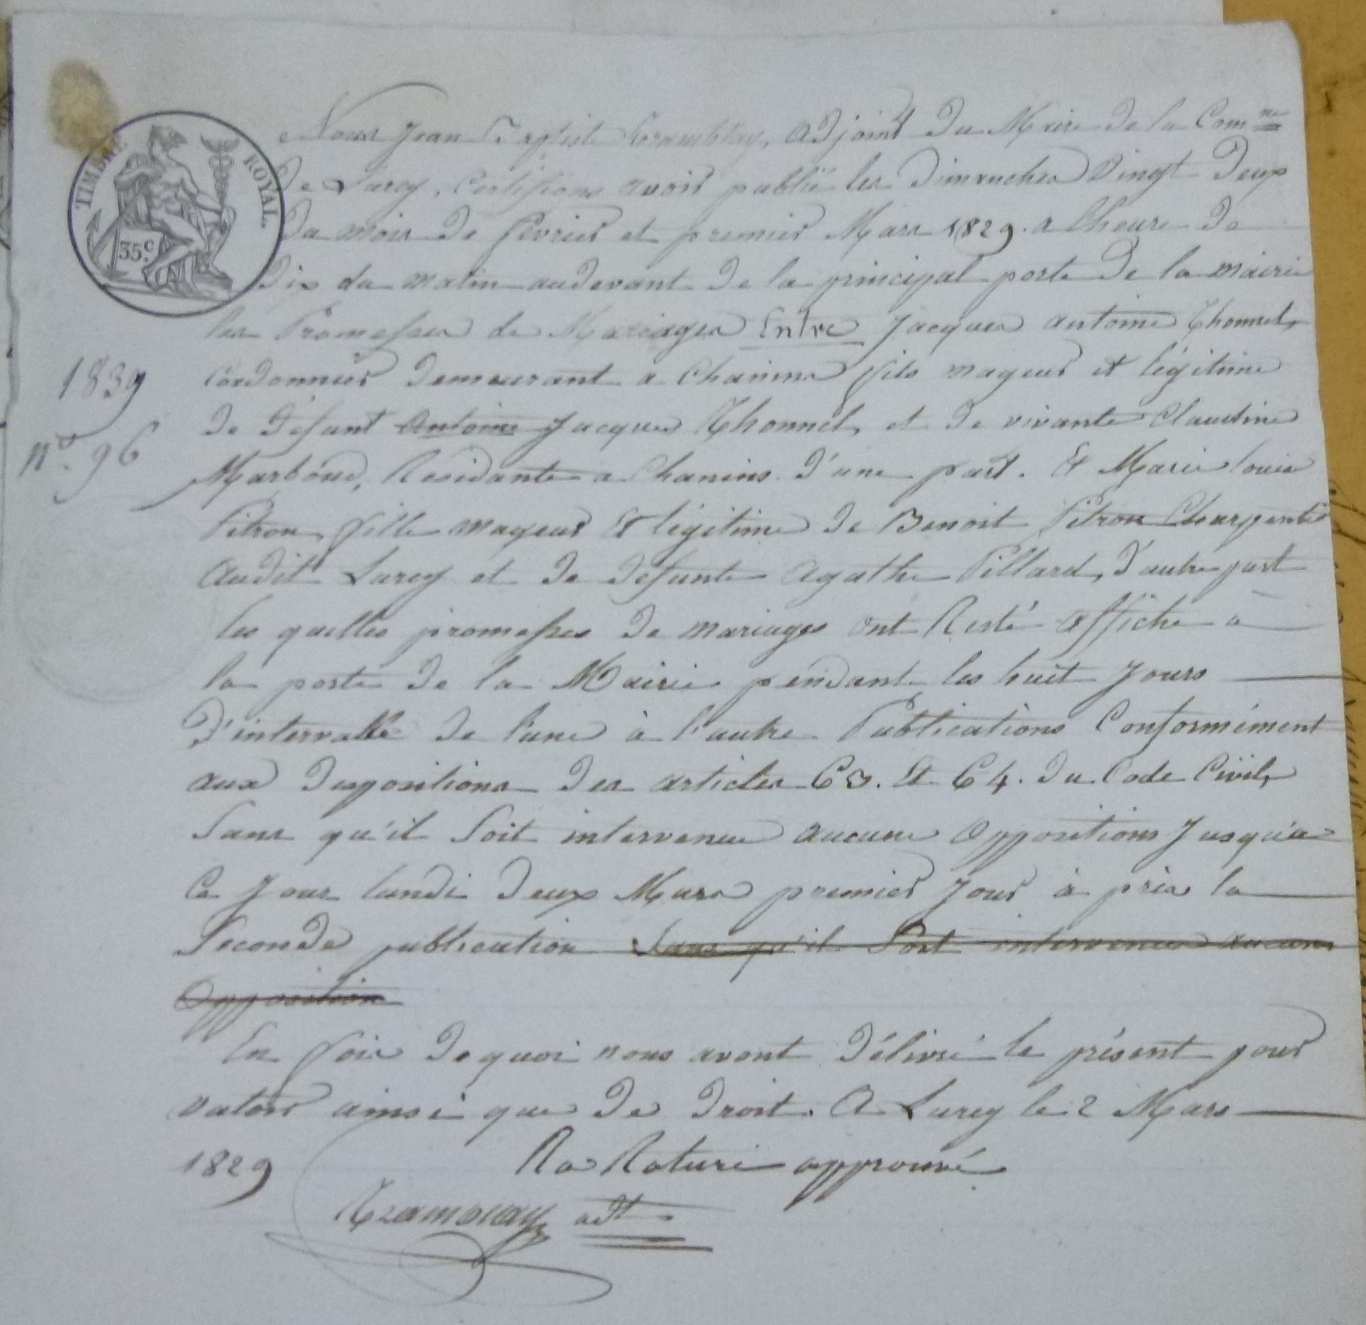 TIMBRE ROYAL.
35c.
Nous Jean Baptiste Tramblay, adjoint du Maire de la Comne
de Lurcy, Certifions avoir publié les dimanches Vingt deux
du mois de février et premier Mars 1829. a l'heure de
dix du matin audevant de la principal porte de la mairie
les Promesses de Mariages Entre Jacques antoine Thonnel,
Cordonnier demeurant a Chanins fils mageur et légitime
de défunt Antoine Jacques Thonnel, et de vivante Claudine
1839
n°. 96
Marboud, Residante a Chanins d'une part. Et Marie louise
Pitron fille mageur & légitime de Benoit Pitron Charpentier
audit Lurcy et de defunte agathe Pillard, d'autre part
les quelles promesses de mariages ont Resté affiche a
la porte de la Mairie pendant les huit Jours
d'intervalle de l'une à l'autre Publications Conformément
aux dispositions des articles 63. Et 64. du Code Civil,
Sans qu'il Soit intervenue aucune Oppositions Jusqu'a
Ce Jour lundi deux Mars premier Jour à près la
Seconde publication Sans qu'il Soit intervenue aucune
Opposition
En foie de quoi nous avont délivré le présent pour
valoir ainsi que de droit. A Lurcy le 2 Mars
1829
La Rature approuvé
Tramblay adt